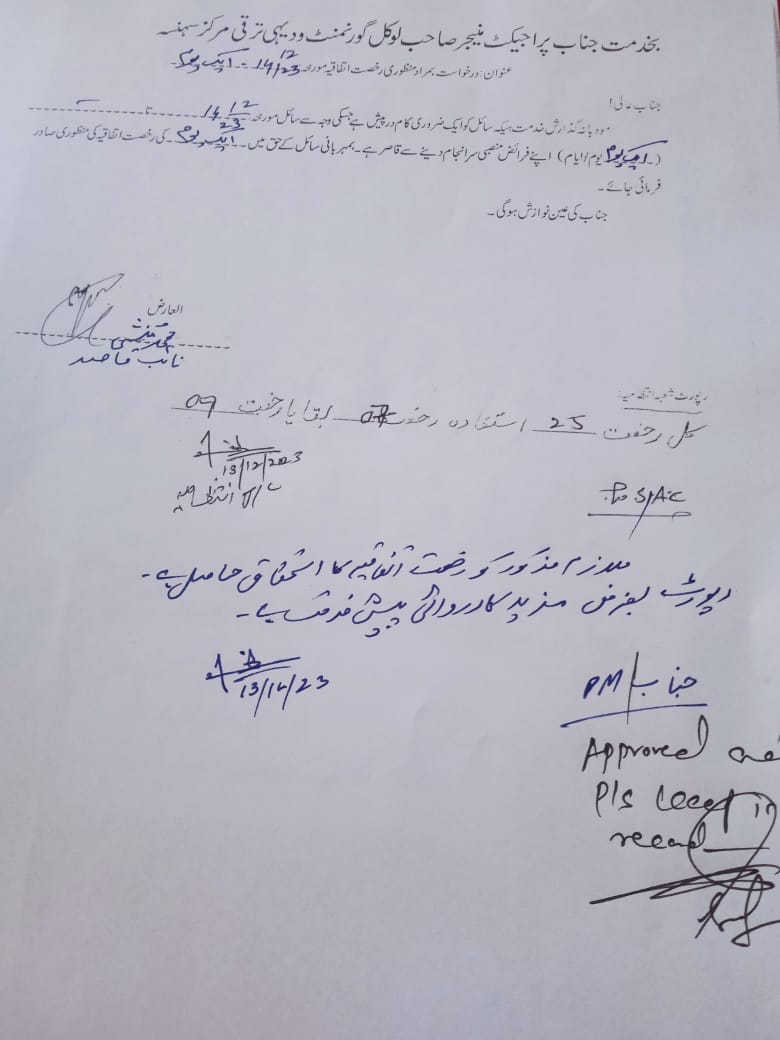 بخدمت جناب پراجیکٹ منیجر صاحب لوکل گورنمنٹ و دیہی ترقی مرکز سہنسہ
عنوان: درخواست بمراد منظوری رخصت اتفاقیہ مورخہ 14/12/23 ۔ ایک یوم
جناب عالی!
مودبانہ گذارش خدمت ہیکہ سائل کو ایک ضروری کام درپیش ہے جسکی وجہ سے سائل مورخہ 14 12/23 تا
( ایک یوم یوم/ایام ) اپنے فرائض منصبی سرانجام دینے سے قاصر ہے۔ بمہربانی سائل کے حق میں ۔ ایک یوم کی رخصت اتفاقیہ کی منظوری صادر
فرمائی جائے۔
جناب کی عین نوازش ہوگی۔
العارض
محمد
نائب قاصد
رپورٹ شعبہ انتظامیہ:
کل رخصت 25 استفادہ رخصت بقایا رخصت 09
13/12/2023
انتظامیہ
ملازم مذکور کو رخصت اتفاقیہ کا استحقاق حاصل ہے۔
رپورٹ بغرض مزید کارروائی پیش خدمت ہے۔
13/12/23
جناب PM
Approved
Pls keep in
record